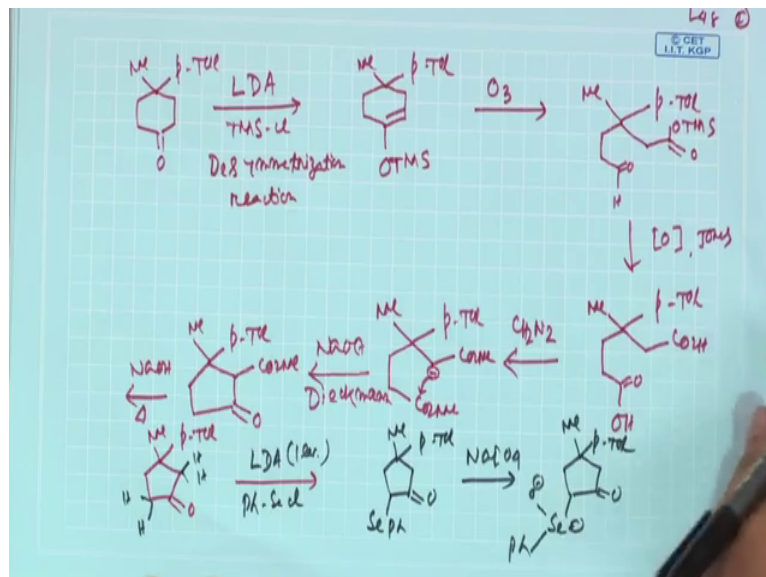 © CET
I.I.T. KGP
Me p-Tol
LDA
TMS-Cl
Desymmetrization
reaction
O
Me p-Tol
OTMS
O3
Me
p-Tol
OTMS
O
O
H
[O], Jones
Me
p-Tol
CO2H
O
OH
CH2N2
Me
p-Tol
CO2Me
CO2Me
Dieckmann
Me
p-Tol
CO2Me
O
NaOH
Δ
Me p-Tol
H
H
H
H
O
LDA (1 eq.)
Ph-SeCl
Me
p-Tol
O
SePh
NaIO4
Me
p-Tol
O
Se
Ph